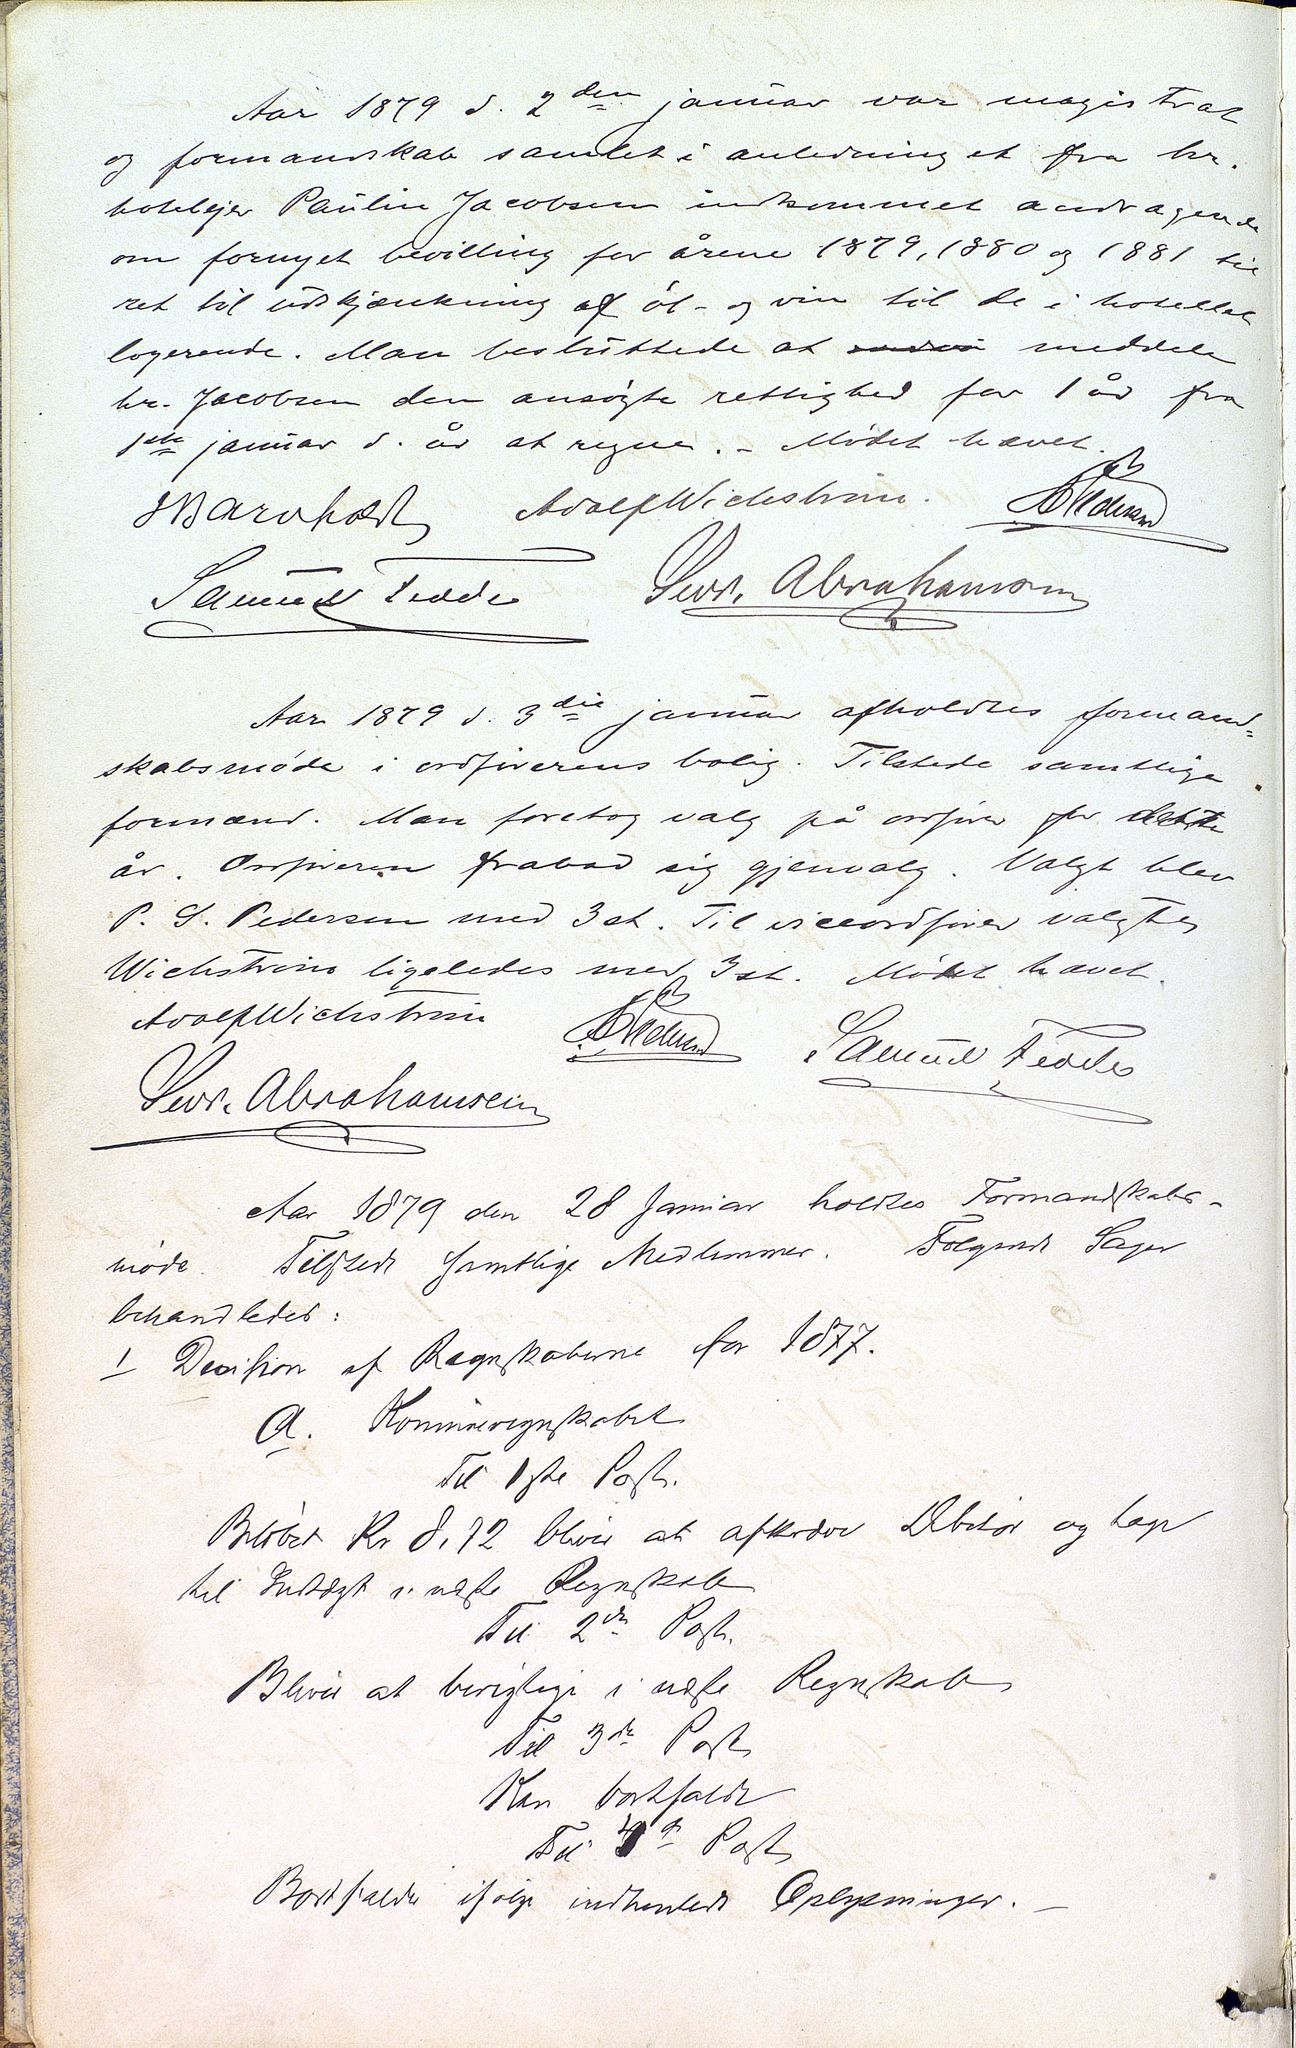 Aar 1879 d. 2den januar var magistrat
og formandskab samlet i anledning et fra hr.
hotelejer Paulin Jacobsen indkommet andragende
om fornyet bevilling for årene 1879, 1880 og 1881 til
ret til udskjænkning af öl- og vin til de i hotellet
logerende. Man besluttede at meddele
hr. Jacobsen den ansögte rettighed for 1 år fra
1ste januar d. år at regne. - Mödet hævet.
AdolfWichström. P Pedersen
Samuel Fedde Sevr. Abrahamsen
Aar 1879 d. 3die januar afholdtes formand=
skabsmöde i ordförerens bolig. Tilstede samtlige
formænd. Man foretog valg på ordförer for dette
år. Ordföreren frabad sig gjenvalg. Valgt blev
P. S. Pedersen med 3 st. Til viceordförer valgtes
Wichström ligeledes med 3 st. Mödet hævet.
AdolfWichström P Pedersen Samuel Fedde
Sevr. Abrahamsen
Aar 1879 den 28 Januar holdtes Formandskabs-
møde. Tilstede samtlige Medlemmer. Følgende Sager
behandledes:
1 Decision af Regnskaberne for 1877.
a. Kommuneregnskabet
Til 1ste Post.
Beløbet Kr 8,72 bliver at afkræve Debitor og tage
til Indtægt i næste Regnskab
Til 2den Post.
Bliver at berigtige i næste Regnskab
Til 3die Post
Kan bortfalde
Til 4de Post
Bortfalder ifølge indhentede Oplysninger. -